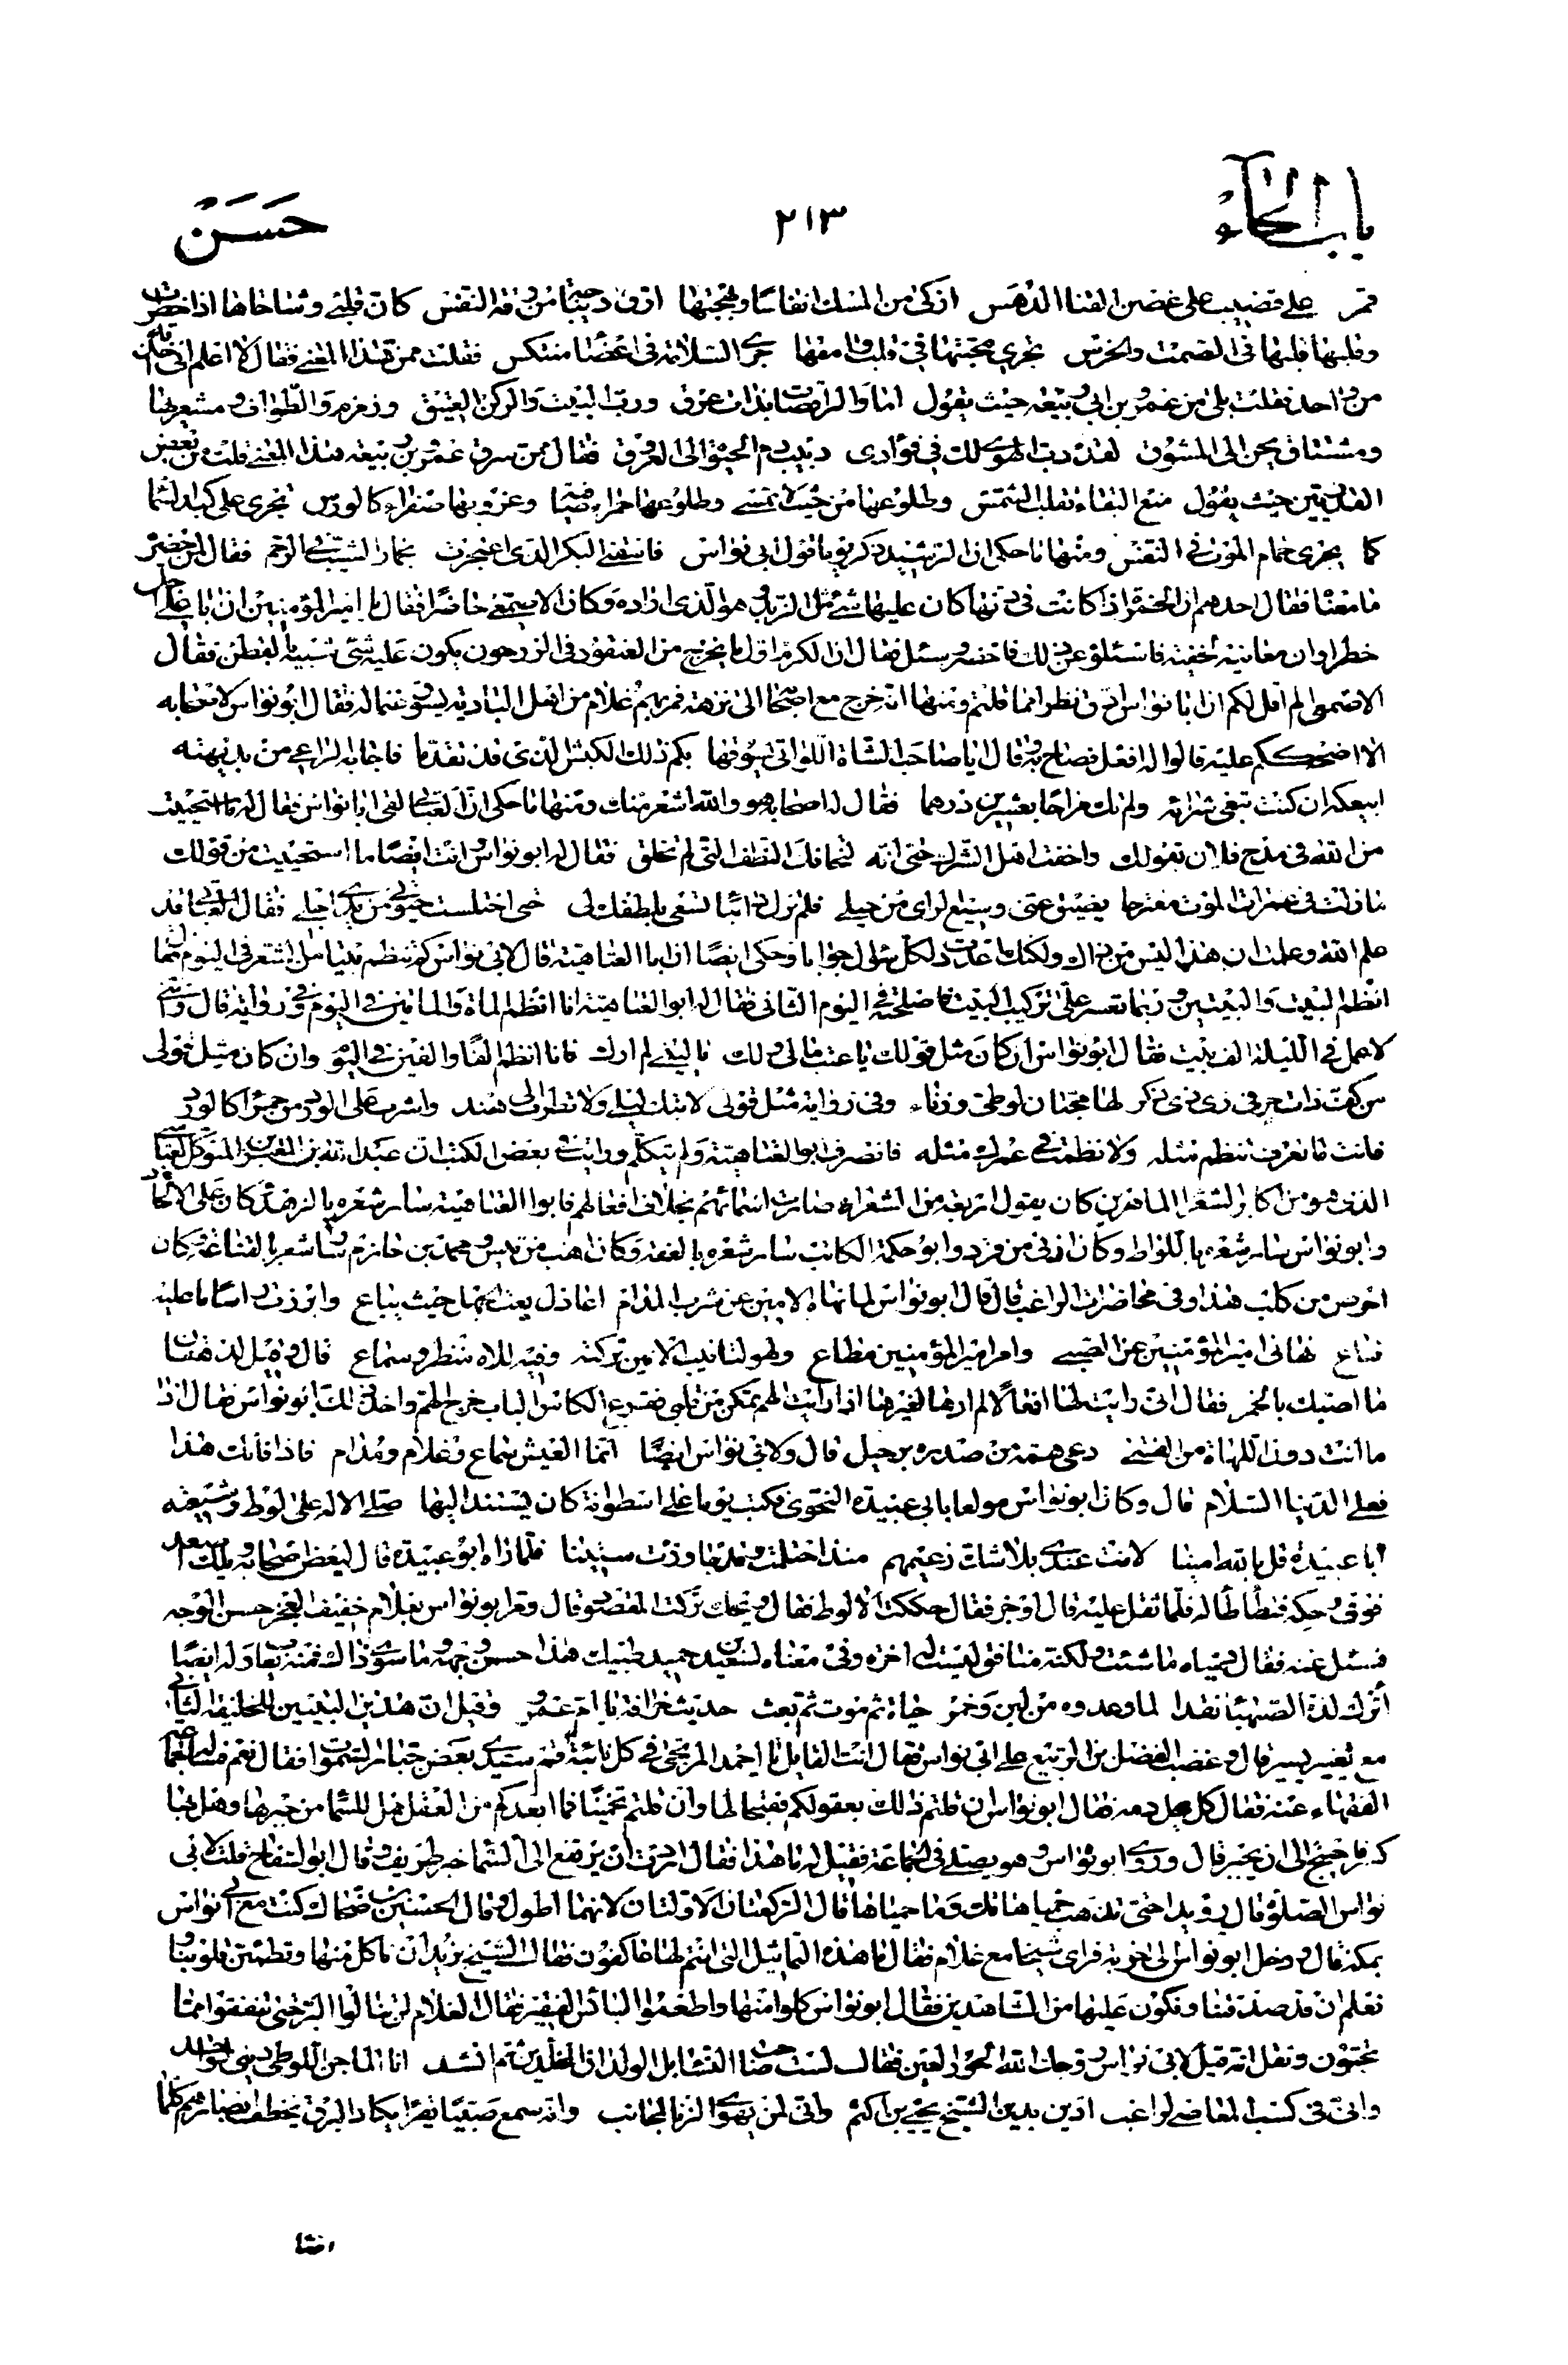 باب الحاء
٢١٣
حَسَن
قمر على قضيب على غصن النقا الدهس ازكى من المسك انفاسا وبهجتها ارق ديباجة من رقة النفس كان قلبى وشاحاها اذا خطرت
وقلبها قلبها فى الصمت والخرس تجرى محبتها فى قلب وامقها جرى السلامة فى اعضا منتكس فقلت ممن هذا المعنى فقال لا اعلم انى اخذته
من احد فقلت بلى من عمر بن ابى ربيعة حيث يقول اما والراقصات بذات عرق ورب البيت والركن العتيق وزمزم والطواف ومشعريها
ومشتاق يحن الى المشوق لقد دب الهوى لك فى فؤادى دبيب دم الحيوة الى العروق فقال ممن سرق عمر بن ربيعة هذا المعنى قلت من بعض
حيث يقول منع البقاء تقلب الشمس وطلوعها من حيث لا تمسى وطلوعها حمراء وغروبها صفراء كالورس تجرى على كبد السما
كما يجرى حمام الموت فى النفس ومنها ما حكى ان الرشيد ذكر يوما قول ابى نواس فاسقنى البكر التى اعتجرت بخمار الشيب فى الرحم فقال لمن حضر
ما معنا فقال احدهم ان الخمرة اذا كانت فى دنها كان عليها شئ مثل الزبد هو الذى اراده وكان الاصمعى حاضرا فقال يا امير المؤمنين ان ابا على اجل
خطرا وان معانيه لخفية فاسئلوه عن ذلك فاحضر وسئل فقال ان الكرم اول ما يخرج من العنقود فى الزرجون يكون عليه شئ شبيه بالقطن فقال
الاصمعى الم اقل لكم ان ابا نواس ادق نظرا مما قلتم ومنها انه خرج مع اصحابه الى نزهة فمر بهم غلام من اهل البادية يسوق غنما له فقال ابو نواس لاصحابه
الا اضحككم عليه قالوا له افعل فصاح به وقال يا صاحب الشاة اللواتى يسوقها بكم ذلك الكبش الذى قد تقدما فاجابه الراعى من بديهته
ابيعكه ان كنت تبغى شرائه ولم تك مزاحا بعشرين درهما فقال له اصحابه هو والله اشعر منك ومنها ما حكى ان العتابى لقى ابا نواس فقال له ما استحييت
من الله فى مدح فلان بقولك واخفت اهل الشرك حتى انه لتخافك النطف التى لم تخلق فقال له ابو نواس وانت ايضا ما استحييت من قولك
ما زلت فى غمرات الموت مطرحا يضيق عنى وسيع الراى من حيلى فلم تزل دائبا تسعى بلطفك لى حتى اختلست حيوتى من يدى اجلى فقال العتابى قد
علم الله وعلمت ان هذا ليس من ذاك ولكنك اعددت لكل سؤال جوابا وحكى ايضا ان ابا العتاهية قال لابى نواس كم تنظم بيتا من الشعر فى اليوم قال ربما
انظم البيت والبيتين وربما تعسر على تركيب البيت فاصلحته فى اليوم الثانى فقال له ابو العتاهية انا انظم الماة والماتين فى اليوم وفى رواية قال
لاعمل فى الليلة الف بيت فقال ابو نواس ان كان مثل قولك يا عتب مالى ولك يا ليتنى لم ارك فانا انظم الفا والفين فى اليوم وان كان مثل قولى
من كف ذات حر فى زى ذى ذكر لها محبان لوطى وزناء وفى رواية مثل قولى لا تبك ليلى ولا تطرب الى هند واشرب على الورد من حمراء كالورد
فانت ما تعرف تنظم مثله ولا نظمت فى عمرك مثله فانصرف ابو العتاهية ولم يتكلم ورايت فى بعض الكتب ان عبد الله بن المعتز بن المتوكل العباسى
الذى هو من اكابر الشعراء الماهرين كان يقول اربعة من الشعراء صارت اسمائهم بخلاف افعالهم فابو العتاهية سار شعره بالزهد وكان على الالحاد
وابو نواس سار شعره باللواط وكان ازنى من قرد وابو حكمة الكاتب سار شعره بالعفة وكان اهب من تيس ومحمد بن حازم سار شعره بالقناعة وكان
احرص من كلب هذا وفى محاضرات الراغب قال قال ابو نواس لما نهاه الامين عن شرب المدام اعاذل بعت الجهل حيث يباع وابرزت راسا ما عليه
قناع نهانى امير المؤمنين عن الصبى وامر امير المؤمنين مطاع ولهو لتانيب الامين تركته وفيه للاه منظر وسماع قال وقيل لدهقان
ما اصبك بالخمر فقال انى رايت لها افعالا لم ارها لغيرها اذا رايت الهم تمكن من قلبى فقرع الكاس الباب خرج الهم واخذ ذلك ابو نواس فقال اذا
ما انت دون اللهاة من الفتى دعى همه من صدره برحيل قال ولابى نواس ايضا انما العيش سماع وغلام ومدام فاذا فاتك هذا
فعلى الدنيا السلام قال وكان ابو نواس مولعا بابى عبيدة النحوى فكتب يوما على اسطوانة كان يستند اليها صلى الاله على لوط وشيعته
ابا عبيدة قل بالله امينا لانت عندى بلا شك زعيمهم منذ احتلمت وقد جاوزت ستينا فلما راه ابو عبيدة قال لبعض اصحابه
فوقى وحكه فتطاطا له فلما ثقل عليه قال اوجز فقال حككت الا لوط فقال ويحك تركت المقصود قال ومر ابو نواس بغلام خفيف العجز حسن الوجه
فسئل عنه فقال محياه ما شئت ولكنه منافق ليست له اخرة وفى معناه لسعيد بن حميد
اترك لذة الصهباء نقدا لما وعدوه من لبن وخمر حياة ثم موت ثم بعث حديث خرافة يا ام عمرو وقيل ان هذين البيتين للخليفة الثانى
مع تغيير يسير قال وغضب الفضل بن الربيع على ابى نواس فقال انت القايل يا احمد المرتجى فى كل نائبة قم سيدى نعص جبار السموات فقال نعم
الفقهاء عنه فقال كل يحل دمه فقال ابو نواس ان قلتم ذلك بعقولكم فقبحا لها وان قلتم تخمينا فما ابعدكم من العقل
قال وروى ابو نواس وهو يصلى فى الجماعة فقيل له ما هذا فقال اردت ان يرتفع الى السما خبر ظريف وقال
نواس الصلوة قال رويدا حتى تذهب حمياها قلت وما حمياها قال الركعتان الاولتان لانهما اطول وقال الحسين بن ضحاك كنت مع ابى نواس
بمكة قال ودخل ابو نواس الى خربة فراى شيخا مع غلام فقال ما هذه التماثيل التى انتم لها عاكفون فقال الشيخ نريد ان ناكل منها وتطمئن قلوبنا
ونعلم ان قد صدقتنا ونكون عليها من الشاهدين فقال ابو نواس كلوا منها واطعموا البائس الفقير فقال الغلام لن تنالوا البر حتى تنفقوا مما
تحبون ونقل انه قيل لابى نواس زوجك الله الحور العين فقال لست صاحب النساء بل الولدان المخلدين ثم انشد انا الماجن اللوطى دينى واحد
وانى فى كسب المعاصى لراغب ادين بدين الشيخ يحيى بن اكثم وانى لمن يهوى الزنا لمجانب وانه سمع صبيا يقرا يكاد البرق يخطف ابصارهم كلما
اضا